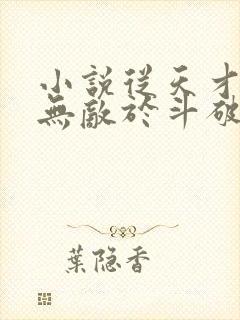 小說從天才
無敵於斗破
葉隐香